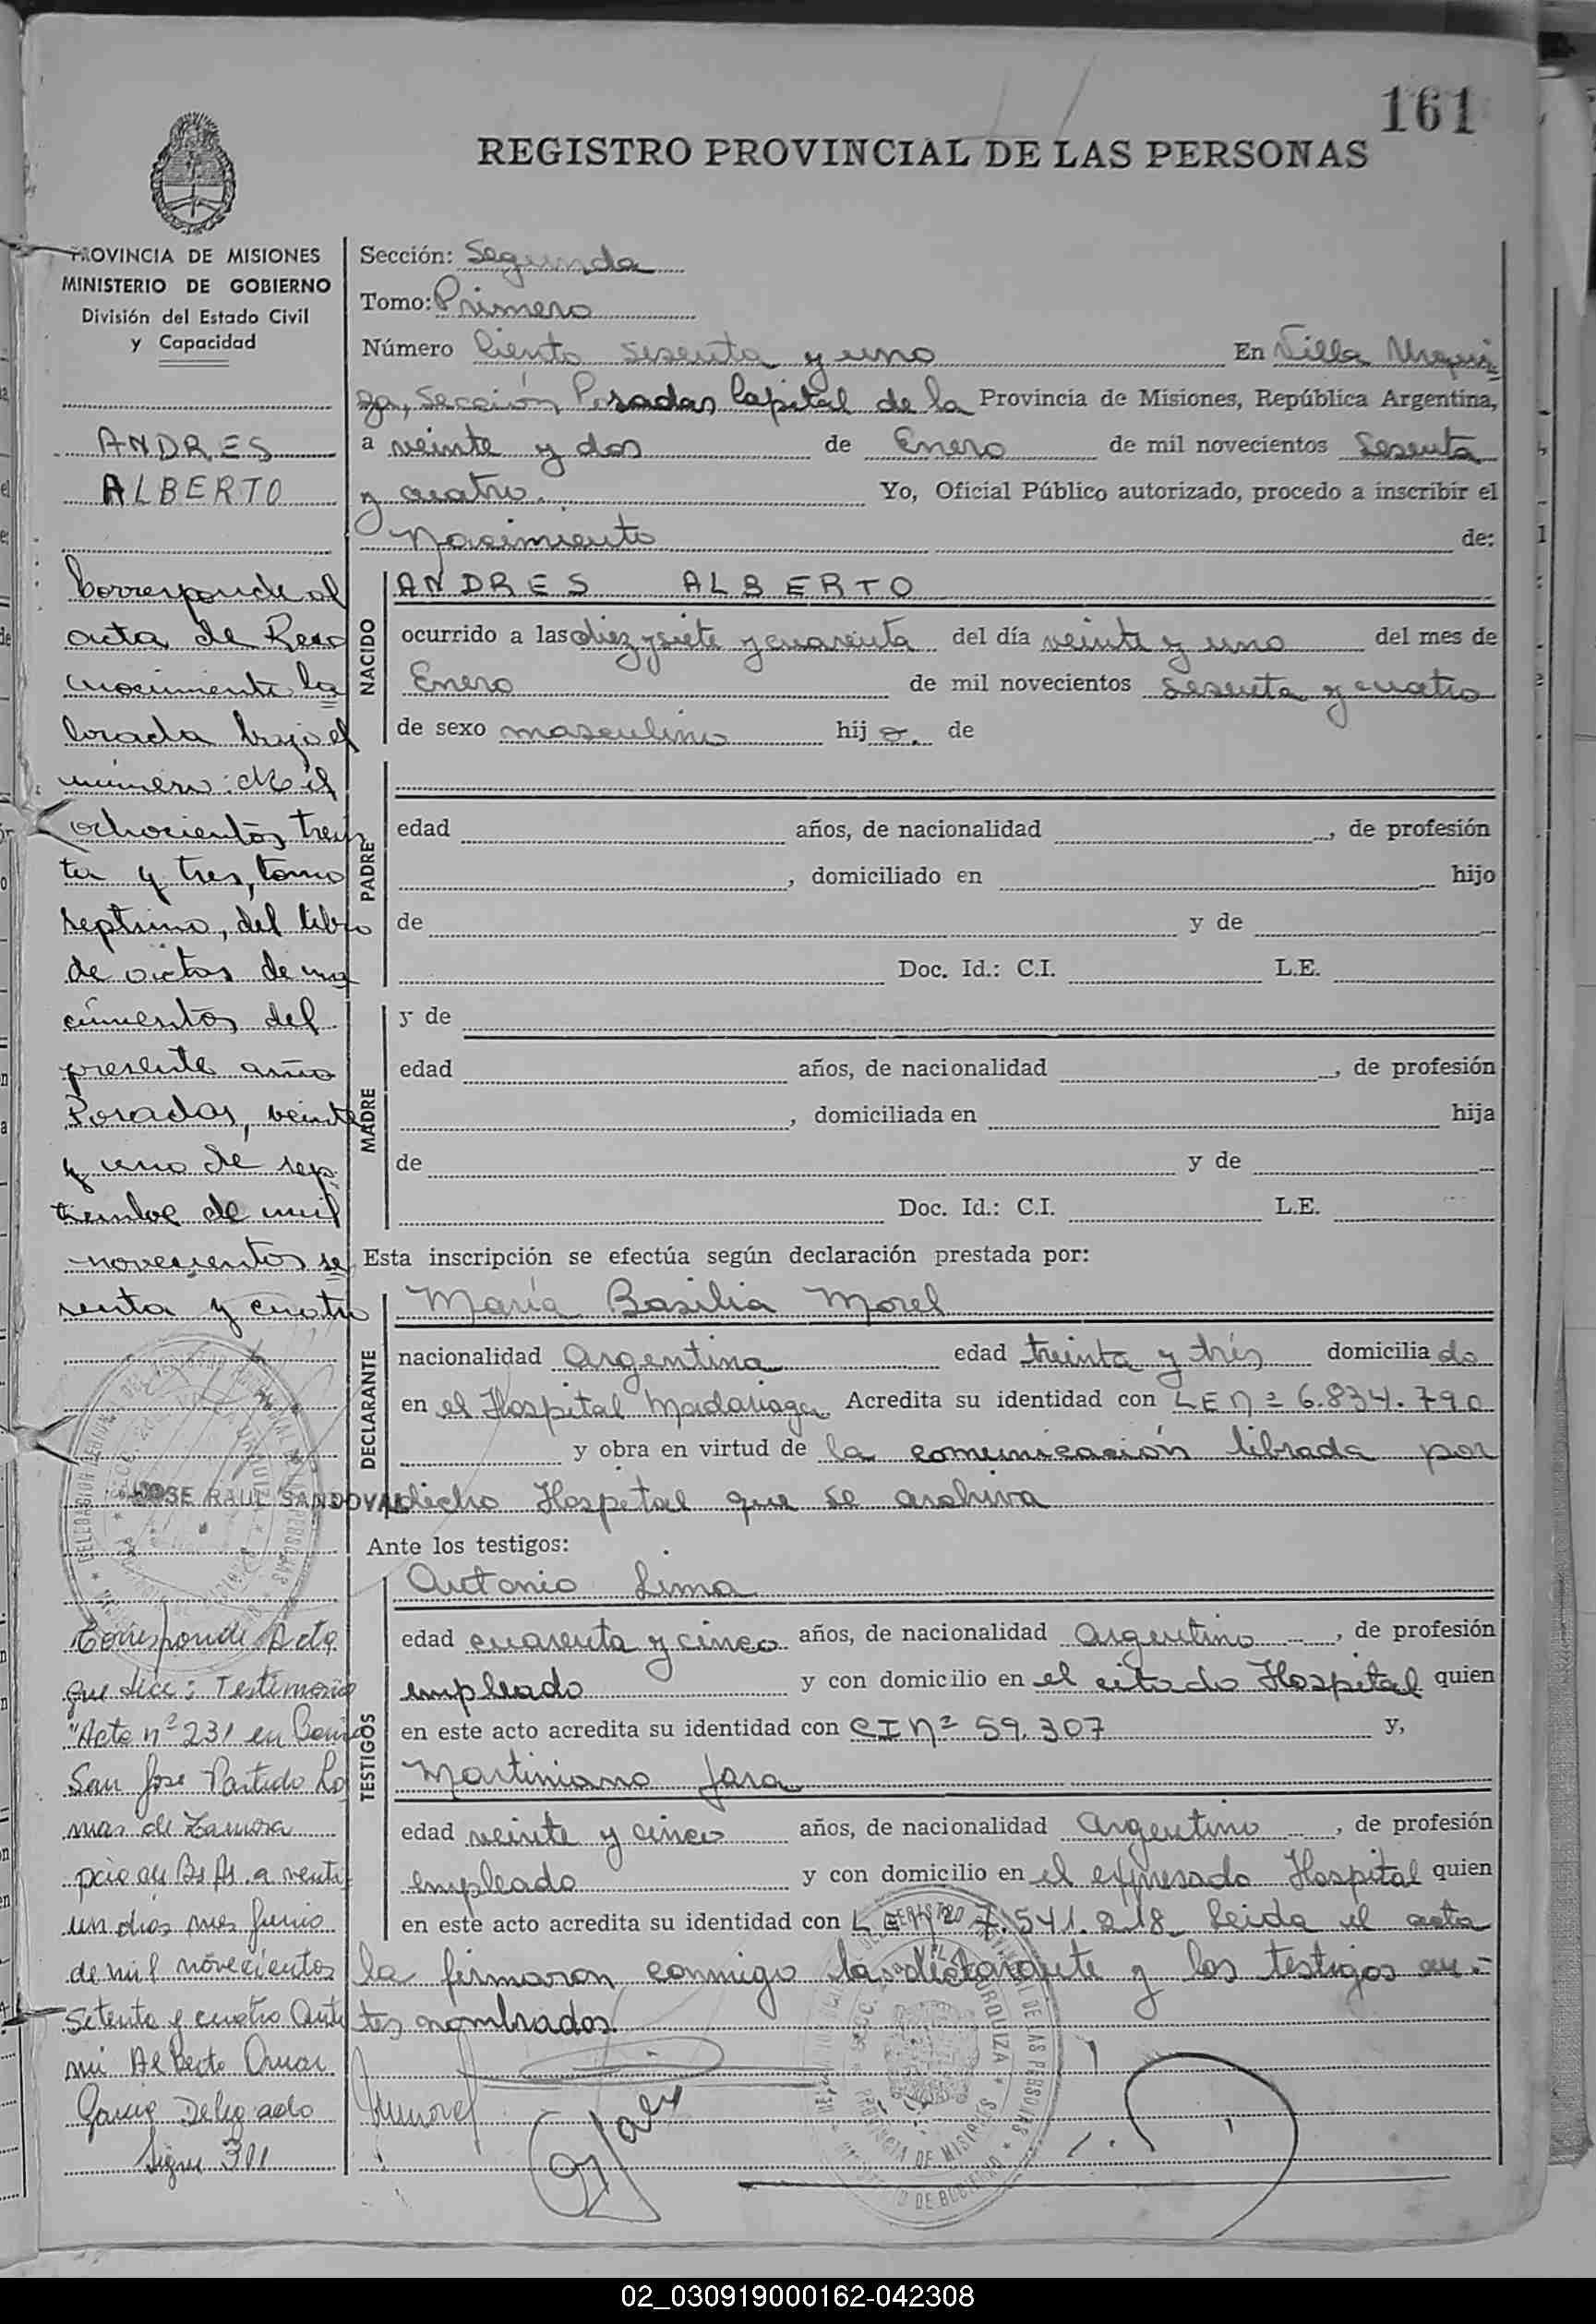 161
REGISTRO PROVINCIAL DE LAS PERSONAS
PROVINCIA DE MISIONES
MINISTERIO DE GOBIERNO
División del Estado Civil
y Capacidad
ANDRES
ALBERTO
Corresponde al
acta de Reco
nocimiento la
brada bajo el
número: Mil
ochocientos trein
ta y tres, tomo
septimo, del libro
de actas de na
cimientos del
presente año
Posadas, veinte
y uno de sep
tiembre de mil
novecientos se
senta y cuatro
JOSE RAUL SANDOVAL
Corresponde Acta
que dice: Testimonio
"Acta nº 231 en
San Jose Partido Lo
mas de Zamora
pcia de Bs As. a venti
un dias mes Junio
de mil novecientos
Setenta y cuatro Ante
mi Alberto Omar
Garcia Delegado
Sigue 301
Sección: Segunda
Tomo: Primero
Número Ciento sesenta y uno En Villa Urqui
za, Sección Posadas Capital de la Provincia de Misiones, República Argentina,
a veinte y dos de Enero de mil novecientos Sesenta
y cuatro. Yo, Oficial Público autorizado, procedo a inscribir el
Nacimiento de:
NACIDO
ANDRES ALBERTO
ocurrido a las diez y siete y cuarenta del día veinte y uno del mes de
Enero de mil novecientos sesenta y cuatro
de sexo masculino hijo. de
PADRE
edad años, de nacionalidad , de profesión
, domiciliado en hijo
de y de
Doc. Id.: C.I. L.E.
MADRE
y de
edad años, de nacionalidad , de profesión
, domiciliada en hija
de y de
Doc. Id.: C.I. L.E.
Esta inscripción se efectúa según declaración prestada por:
DECLARANTE
María Basilia Morel
nacionalidad Argentina edad treinta y trés domiciliado
en el Hospital Madariaga Acredita su identidad con L E nº 6.834.790
y obra en virtud de la comunicación librada por
dicho Hospital que se archiva
Ante los testigos:
TESTIGOS
Antonio Lima
edad cuarenta y cinco años, de nacionalidad Argentino , de profesión
empleado y con domicilio en el citado Hospital quien
en este acto acredita su identidad con C I Nº 59.307 y,
Martiniano Jara
edad veinte y cinco años, de nacionalidad Argentino , de profesión
empleado y con domicilio en el expresado Hospital quien
en este acto acredita su identidad con L E Nº 7.541.218 Leida el acta
la firmaron conmigo la declarante y los testigos an-
tes nombrados.
02_030919000162-042308